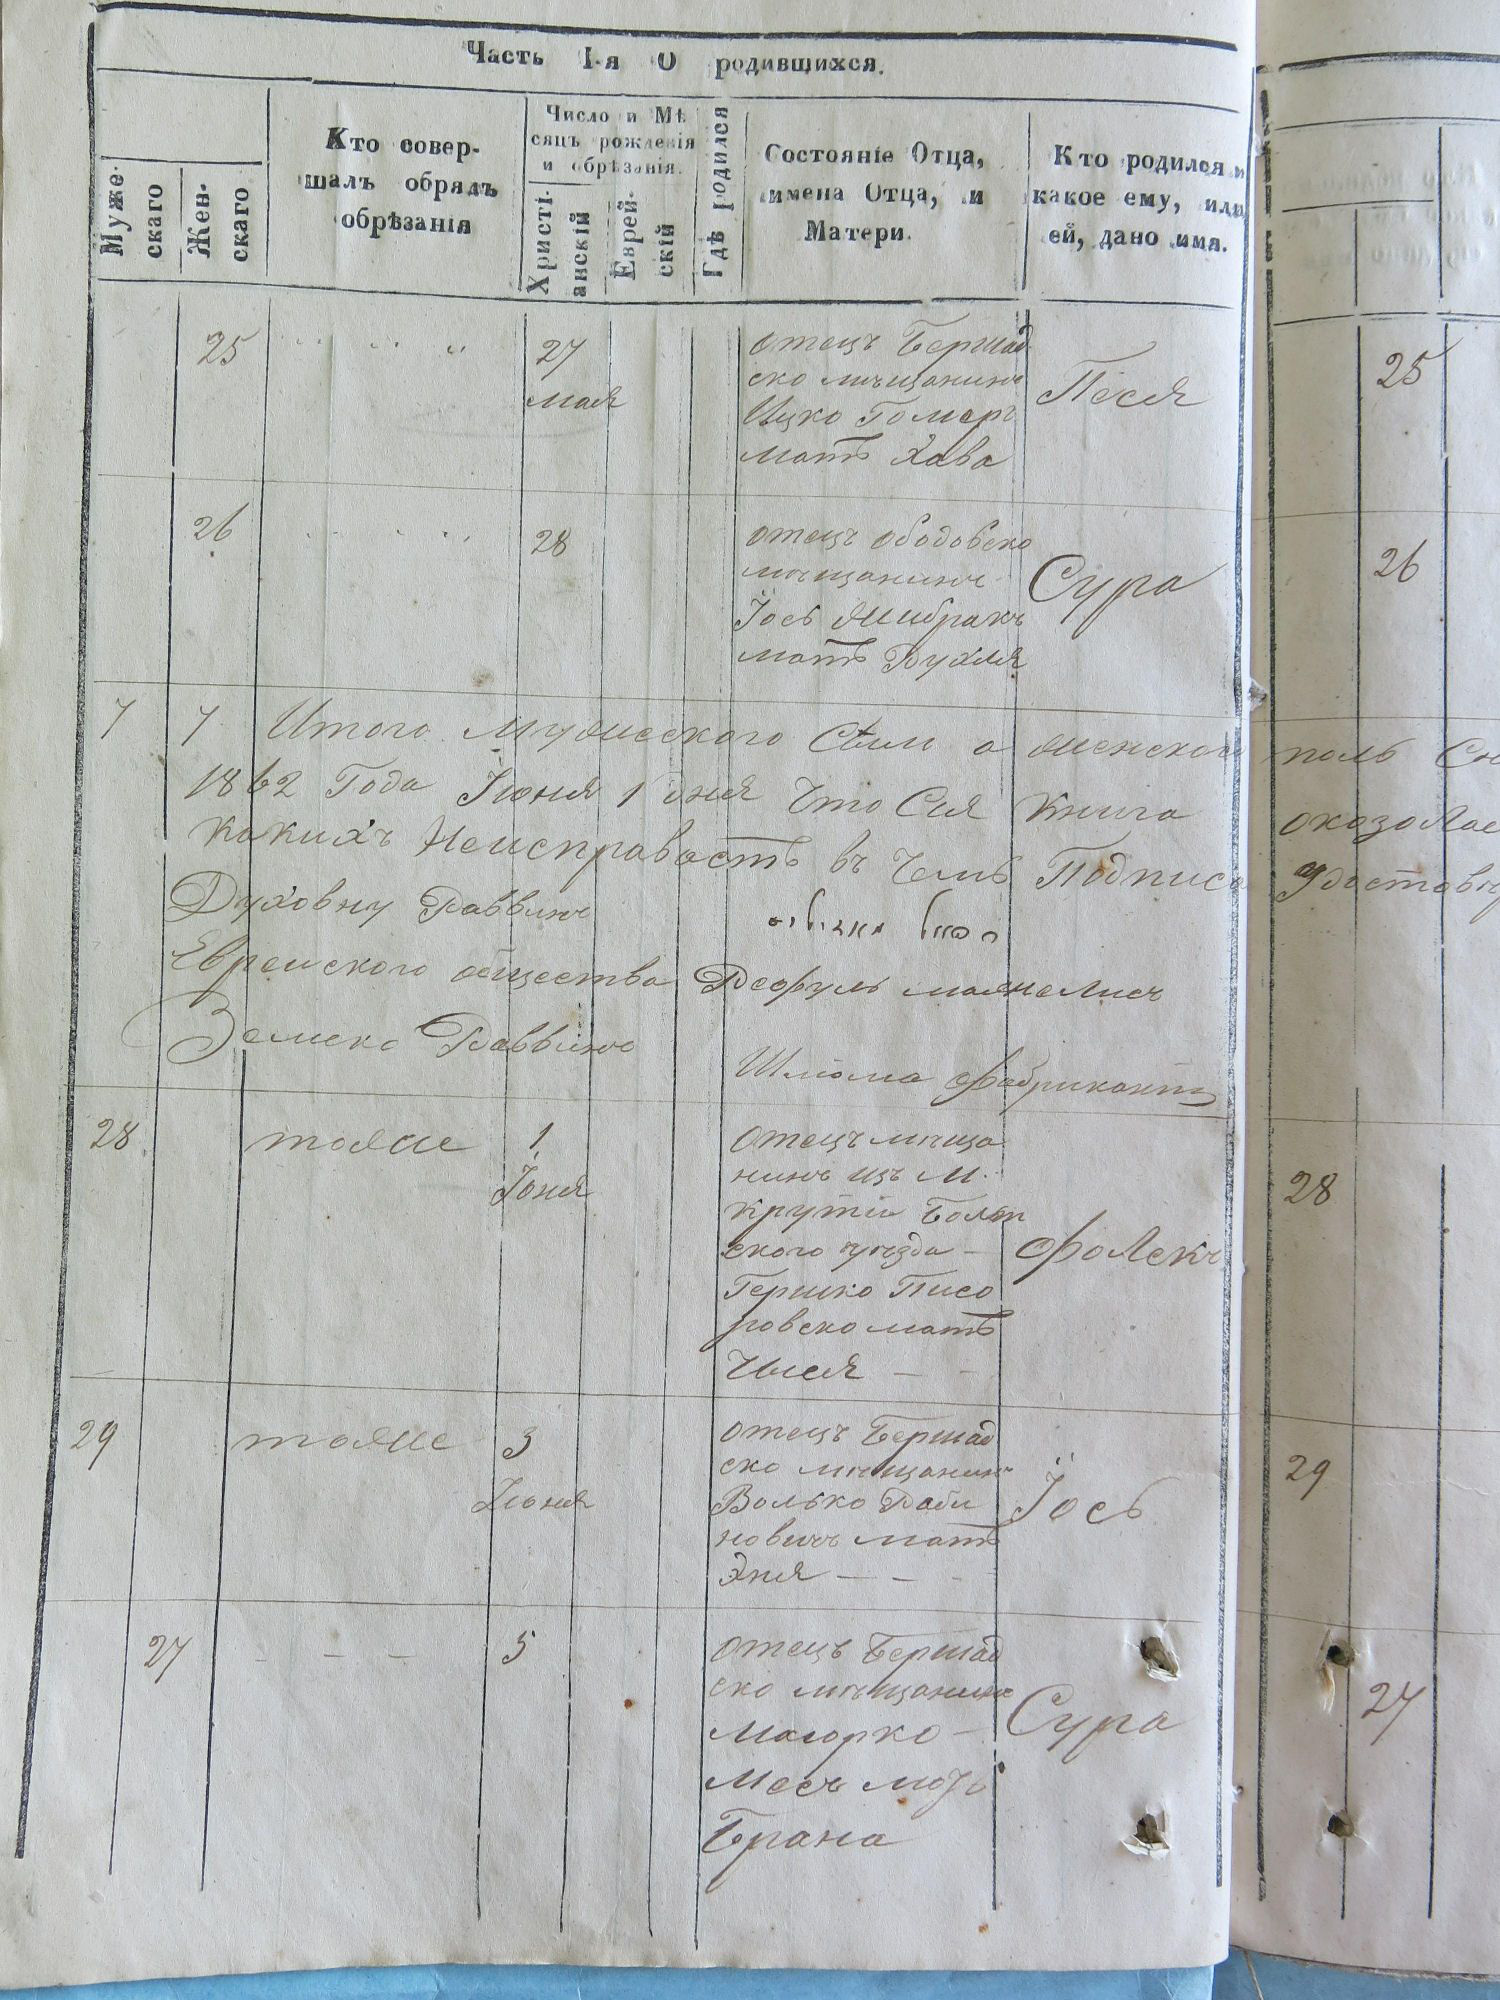 Часть I-я О родившихся.
Муже-
скаго
Жен-
скаго
Кто совер-
шалъ обрядъ
обрѣзанія
Число и Мѣ
сяцъ рожденія
и обрѣзанія.
Христі-
анскій
Еврей-
скій
Гдѣ родился
Состояніе Отца,
имена Отца, и
Матери.
Кто родился и
какое ему, или
ей, дано имя.
25 27 мая
отецъ Бершад
ско мѣщанинъ
Ицко Гомеръ
мать Хава
Песя
25
26 28
отецъ ободовско
мѣщанинъ
Іось
мать Рухля
Сура
26
7 7 Итого Мужеского Семи а женского поль
1862 Года Іюня 1 дня Что Сія Книга
какихъ Неисправость въ Чемъ Подписа
Духовну Раввинъ
Еврейского общества
Земско Раввинъ
Шліома Фабрикантъ
28 тоже 1 Іюня
отецъ мѣща
нинъ изъ м.
крутіи Болт
ского уѣзда —
Гершко Писа
ровско мать
Чися — —
Фолекъ
28
29 тоже 3 Іюня
отецъ Бершад
ско мѣщанинъ
Волько Раби
новичъ мать
Эня — — —
Іось
29
27 — — — 5
отецъ Бершад
ско мѣщанинъ
Маіорко —
Месъ мать
Брана
Сура
27